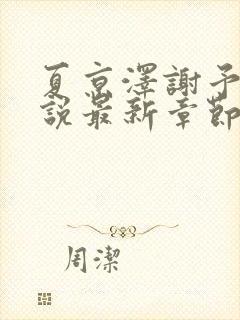 夏京澤謝予
說最新章節
周潔